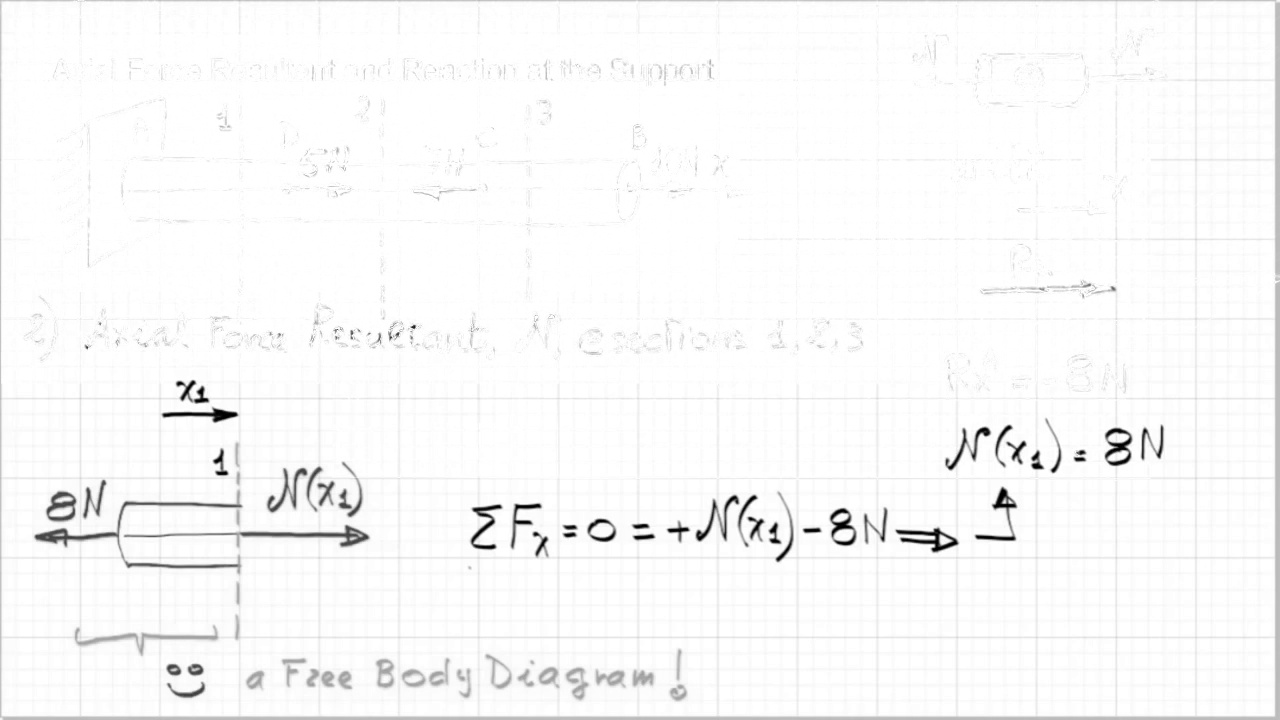 Axial Force Resultant and Reaction at the Support
N N
A 1 D 2 C 3 B
5N 7N 10N x
x
R
2) Axial Force Resultant, N, @ sections 1, 2, 3
Rx = -8N
x1
N(x1) = 8N
1
8N N(x1)
ΣFx = 0 = +N(x1) - 8N ⇒
a Free Body Diagram!